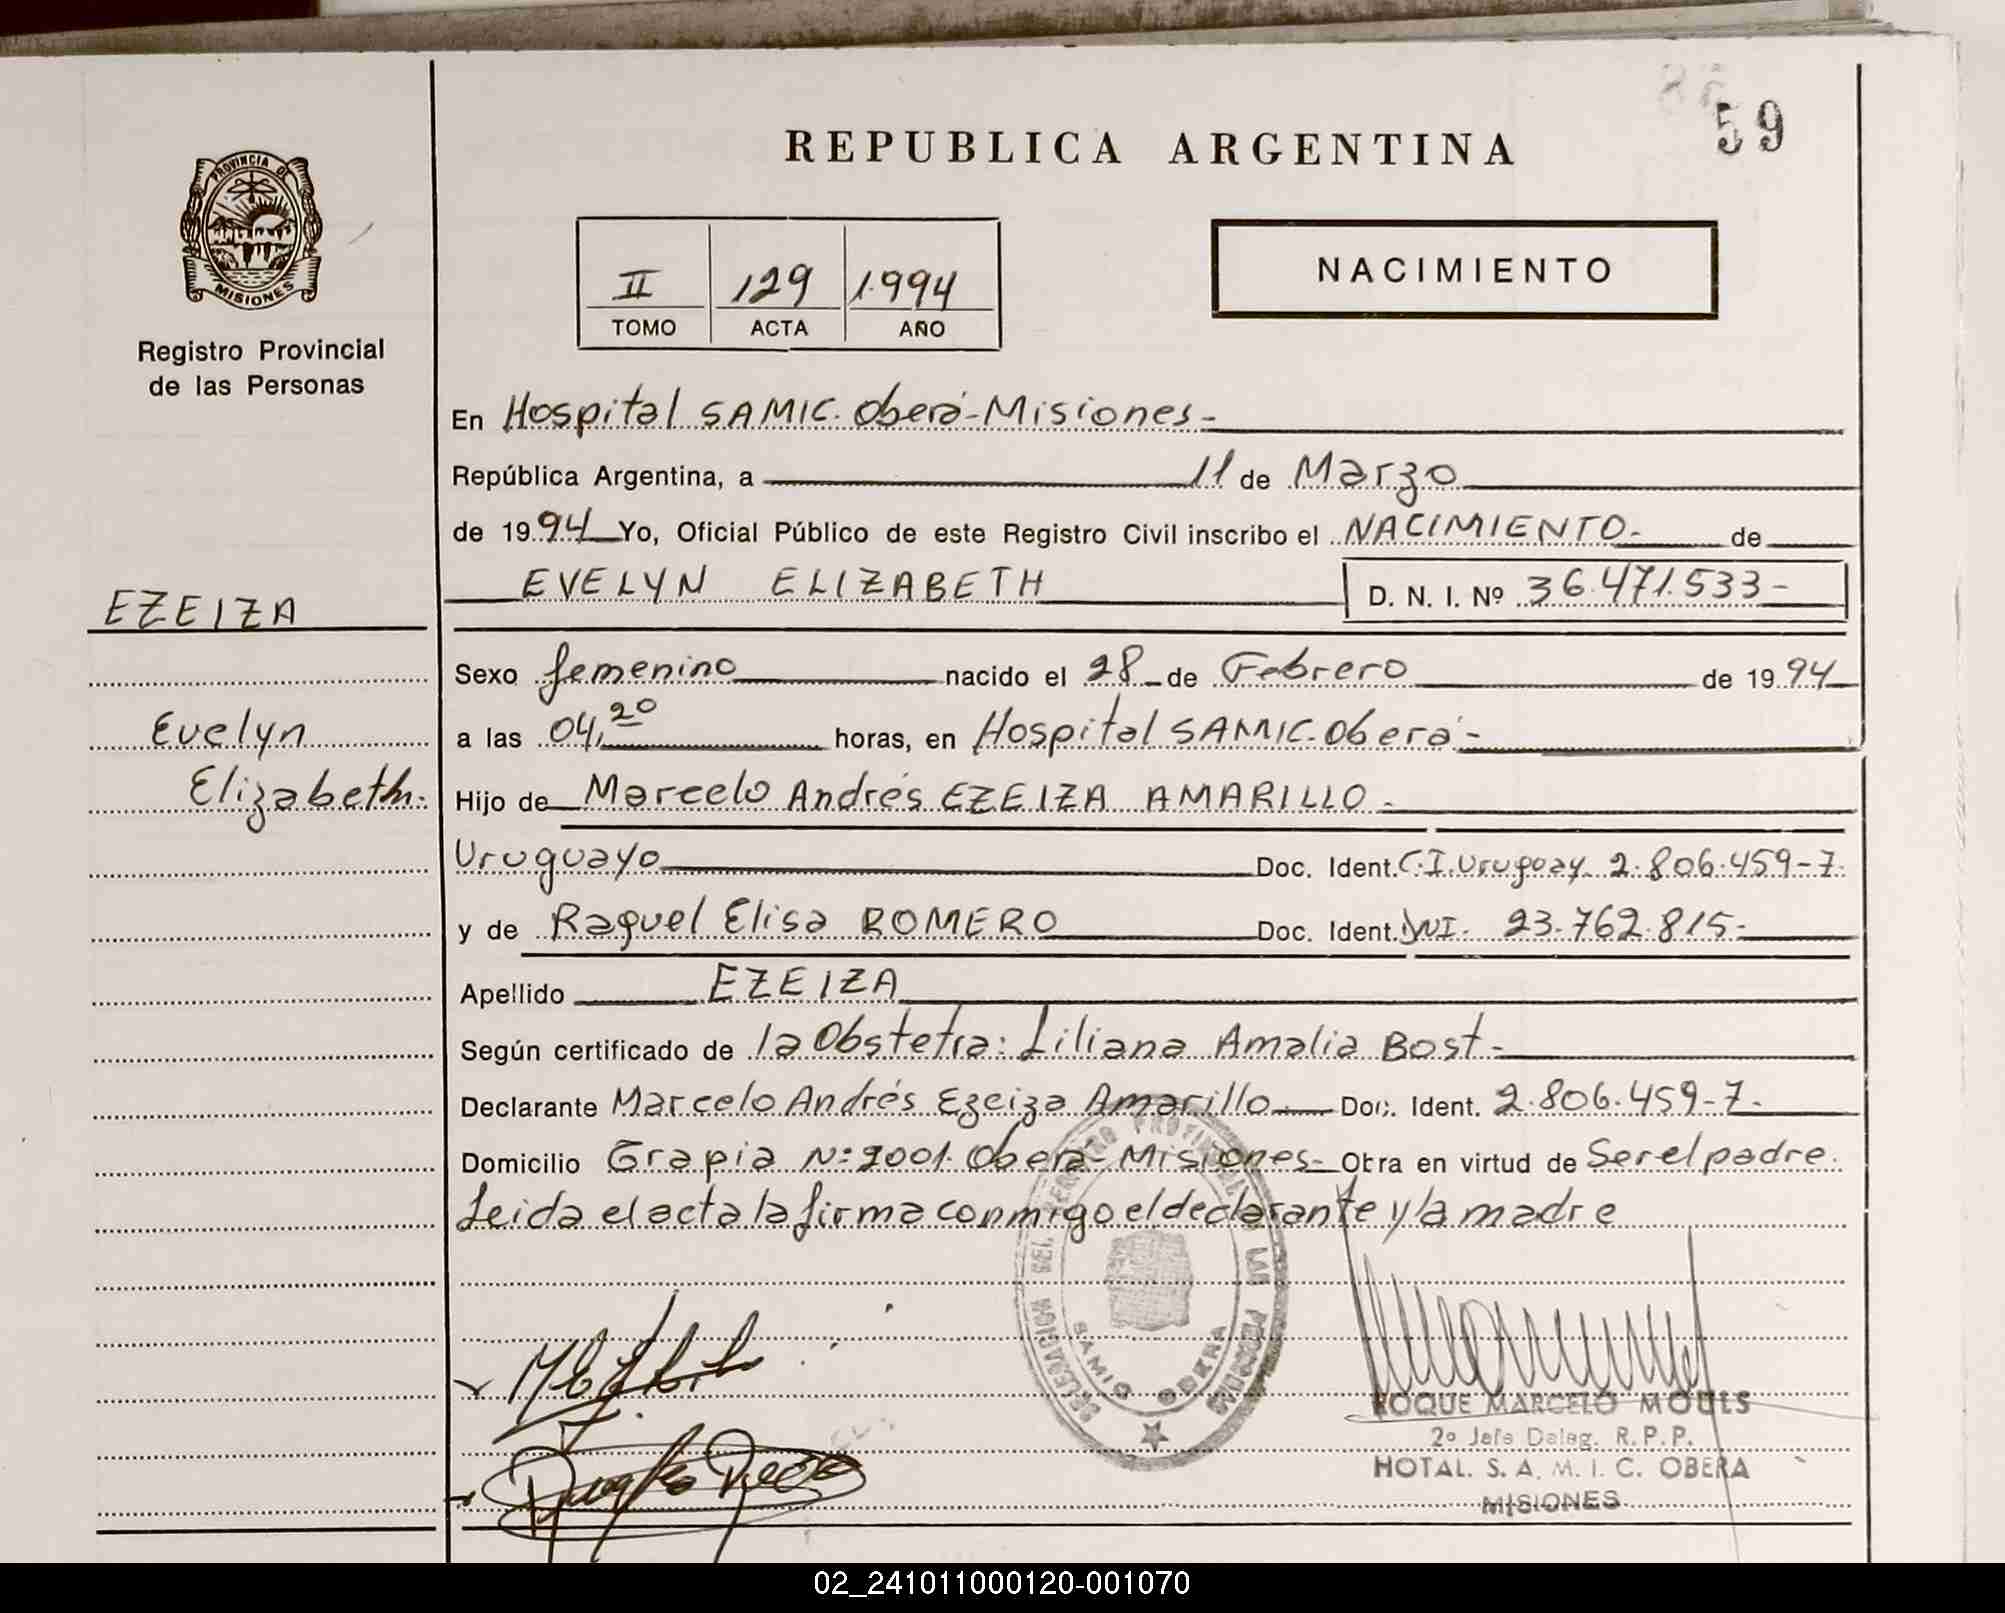 59
REPUBLICA ARGENTINA
PROVINCIA DE
MISIONES
Registro Provincial
de las Personas
II 129 1.994
TOMO ACTA AÑO
NACIMIENTO
En Hospital SAMIC. Oberá-Misiones-
República Argentina, a 11 de Marzo
de 1994 Yo, Oficial Público de este Registro Civil inscribo el NACIMIENTO- de
EVELYN ELIZABETH D. N. I. Nº 36.471.533-
EZEIZA
Sexo femenino nacido el 28 de Febrero de 1994
Evelyn
a las 04,20 horas, en Hospital SAMIC-Oberá-
Elizabeth.
Hijo de Marcelo Andrés EZEIZA AMARILLO-
Uruguayo Doc. Ident. C.I. Uruguay 2.806.459-7.
y de Raquel Elisa ROMERO Doc. Ident. DNI. 23.762.815-
Apellido EZEIZA
Según certificado de la Obstetra: Liliana Amalia Bost-
Declarante Marcelo Andrés Ezeiza Amarillo Doc. Ident. 2.806.459-7.
Domicilio Grapia Nº 2001. Oberá-Misiones- Obra en virtud de Ser el padre.
Leida el acta la firma conmigo el declarante y la madre
DELEGACION DEL REGISTRO PROVINCIAL DE LAS PERSONAS
SAMIC OBERA
ROQUE MARCELO MOULS
2º Jefe Deleg. R.P.P.
HOTAL. S. A. M. I. C. OBERA
MISIONES
02_241011000120-001070